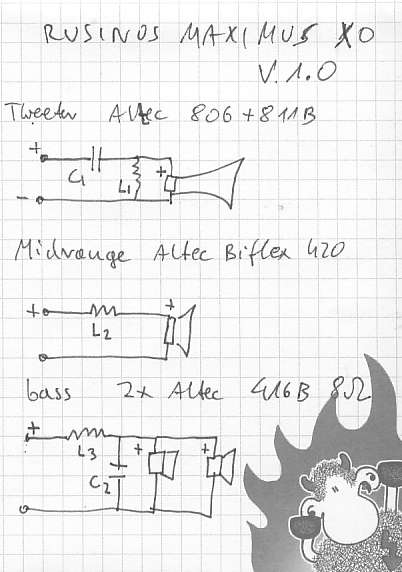 RUSINOS MAXIMUS XO
V.1.0
Tweeter Altec 806 + 811B
+
C1
L1
+
-
Midrange Altec Biflex 420
+
L2
+
bass 2x Altec 416B 8Ω
+
L3
C2
+
+